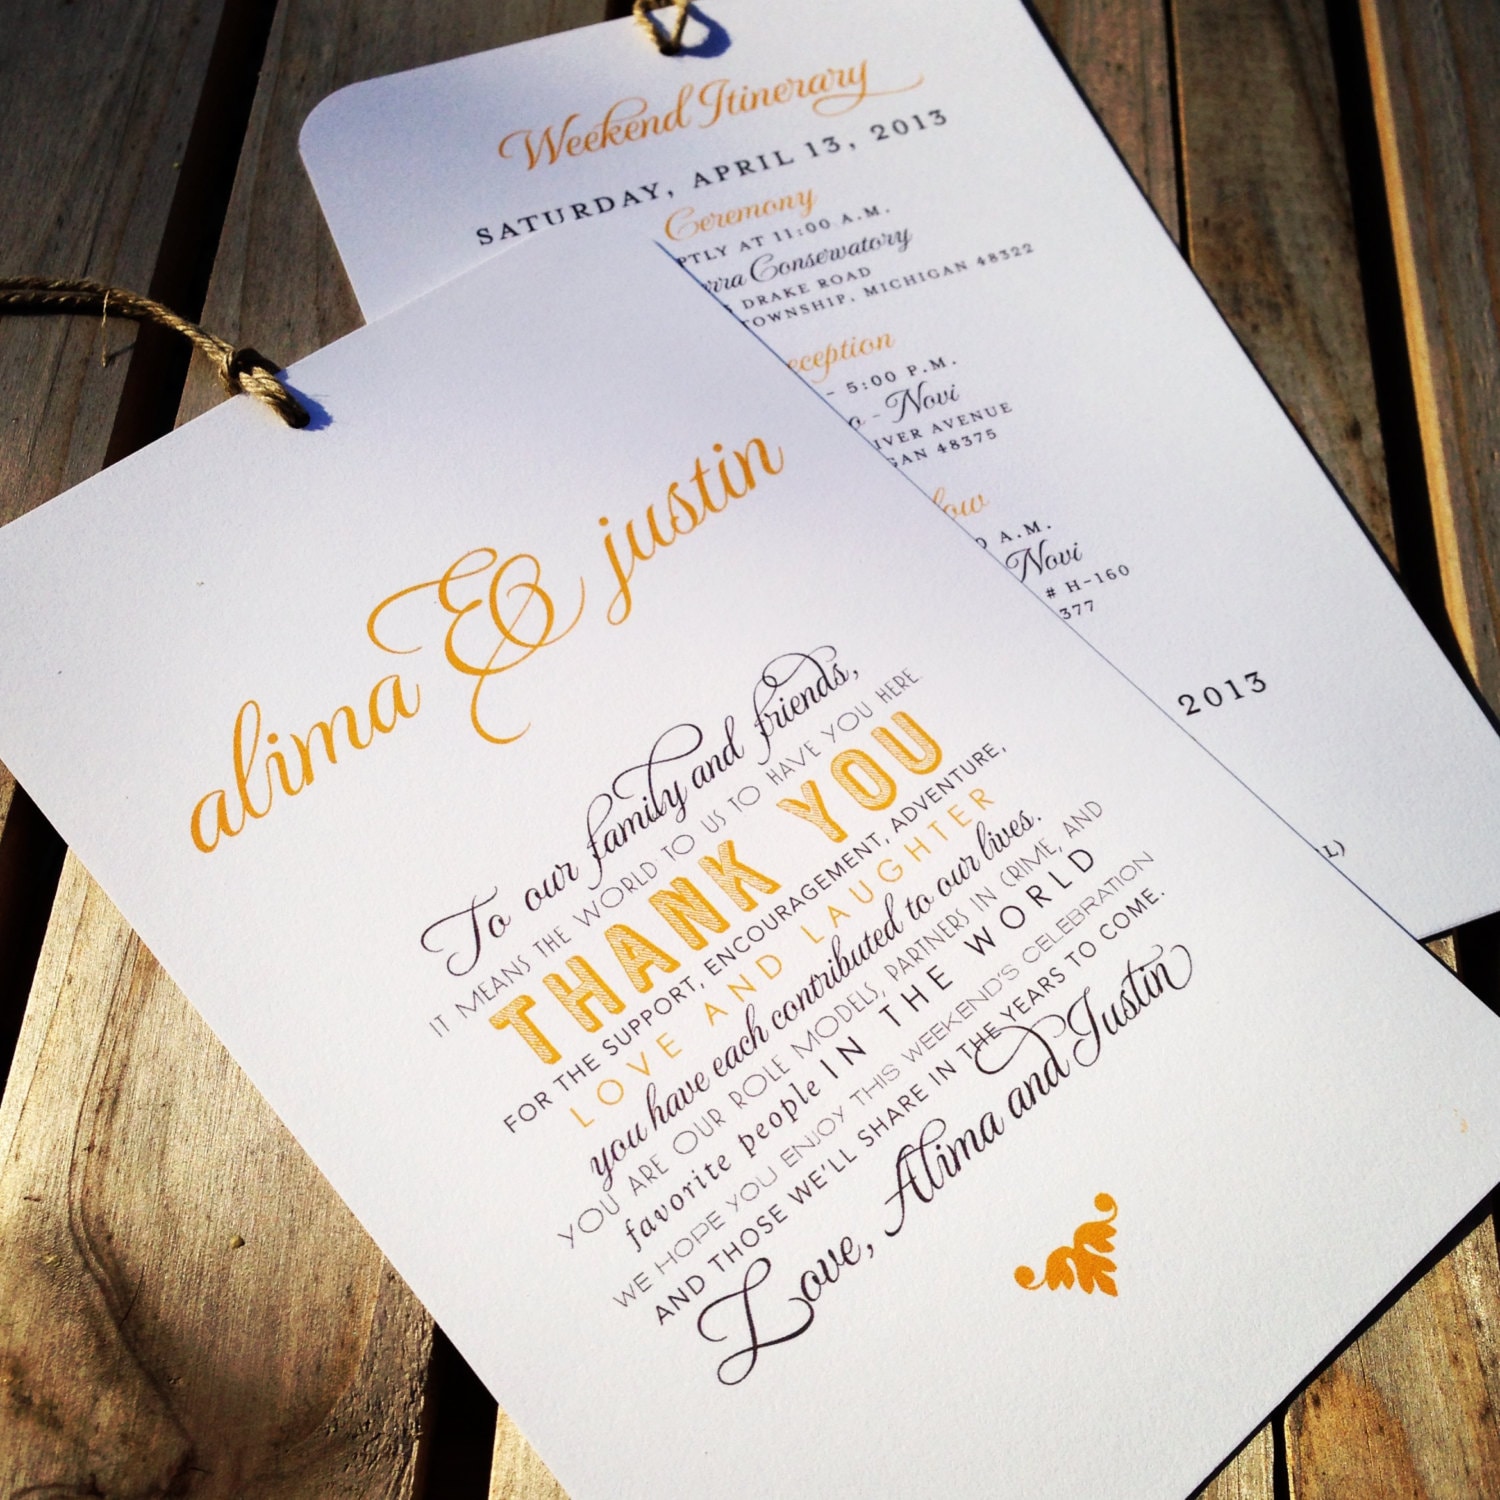 Weekend Itinerary
SATURDAY, APRIL 13, 2013
Ceremony
AT 11:00 A.M.
Conservatory
DRAKE ROAD
TOWNSHIP, MICHIGAN 48322
5:00 P.M.
- Novi
AVENUE
48375
A.M.
Novi
# H-160
2013
alima & justin
To our family and friends,
IT MEANS THE WORLD TO US TO HAVE YOU HERE.
THANK YOU
FOR THE SUPPORT, ENCOURAGEMENT, ADVENTURE,
LOVE AND LAUGHTER
you have each contributed to our lives.
YOU ARE OUR ROLE MODELS, PARTNERS IN CRIME, AND
favorite people IN THE WORLD
WE HOPE YOU ENJOY THIS WEEKEND'S CELEBRATION
AND THOSE WE'LL SHARE IN THE YEARS TO COME.
Love, Alima and Justin